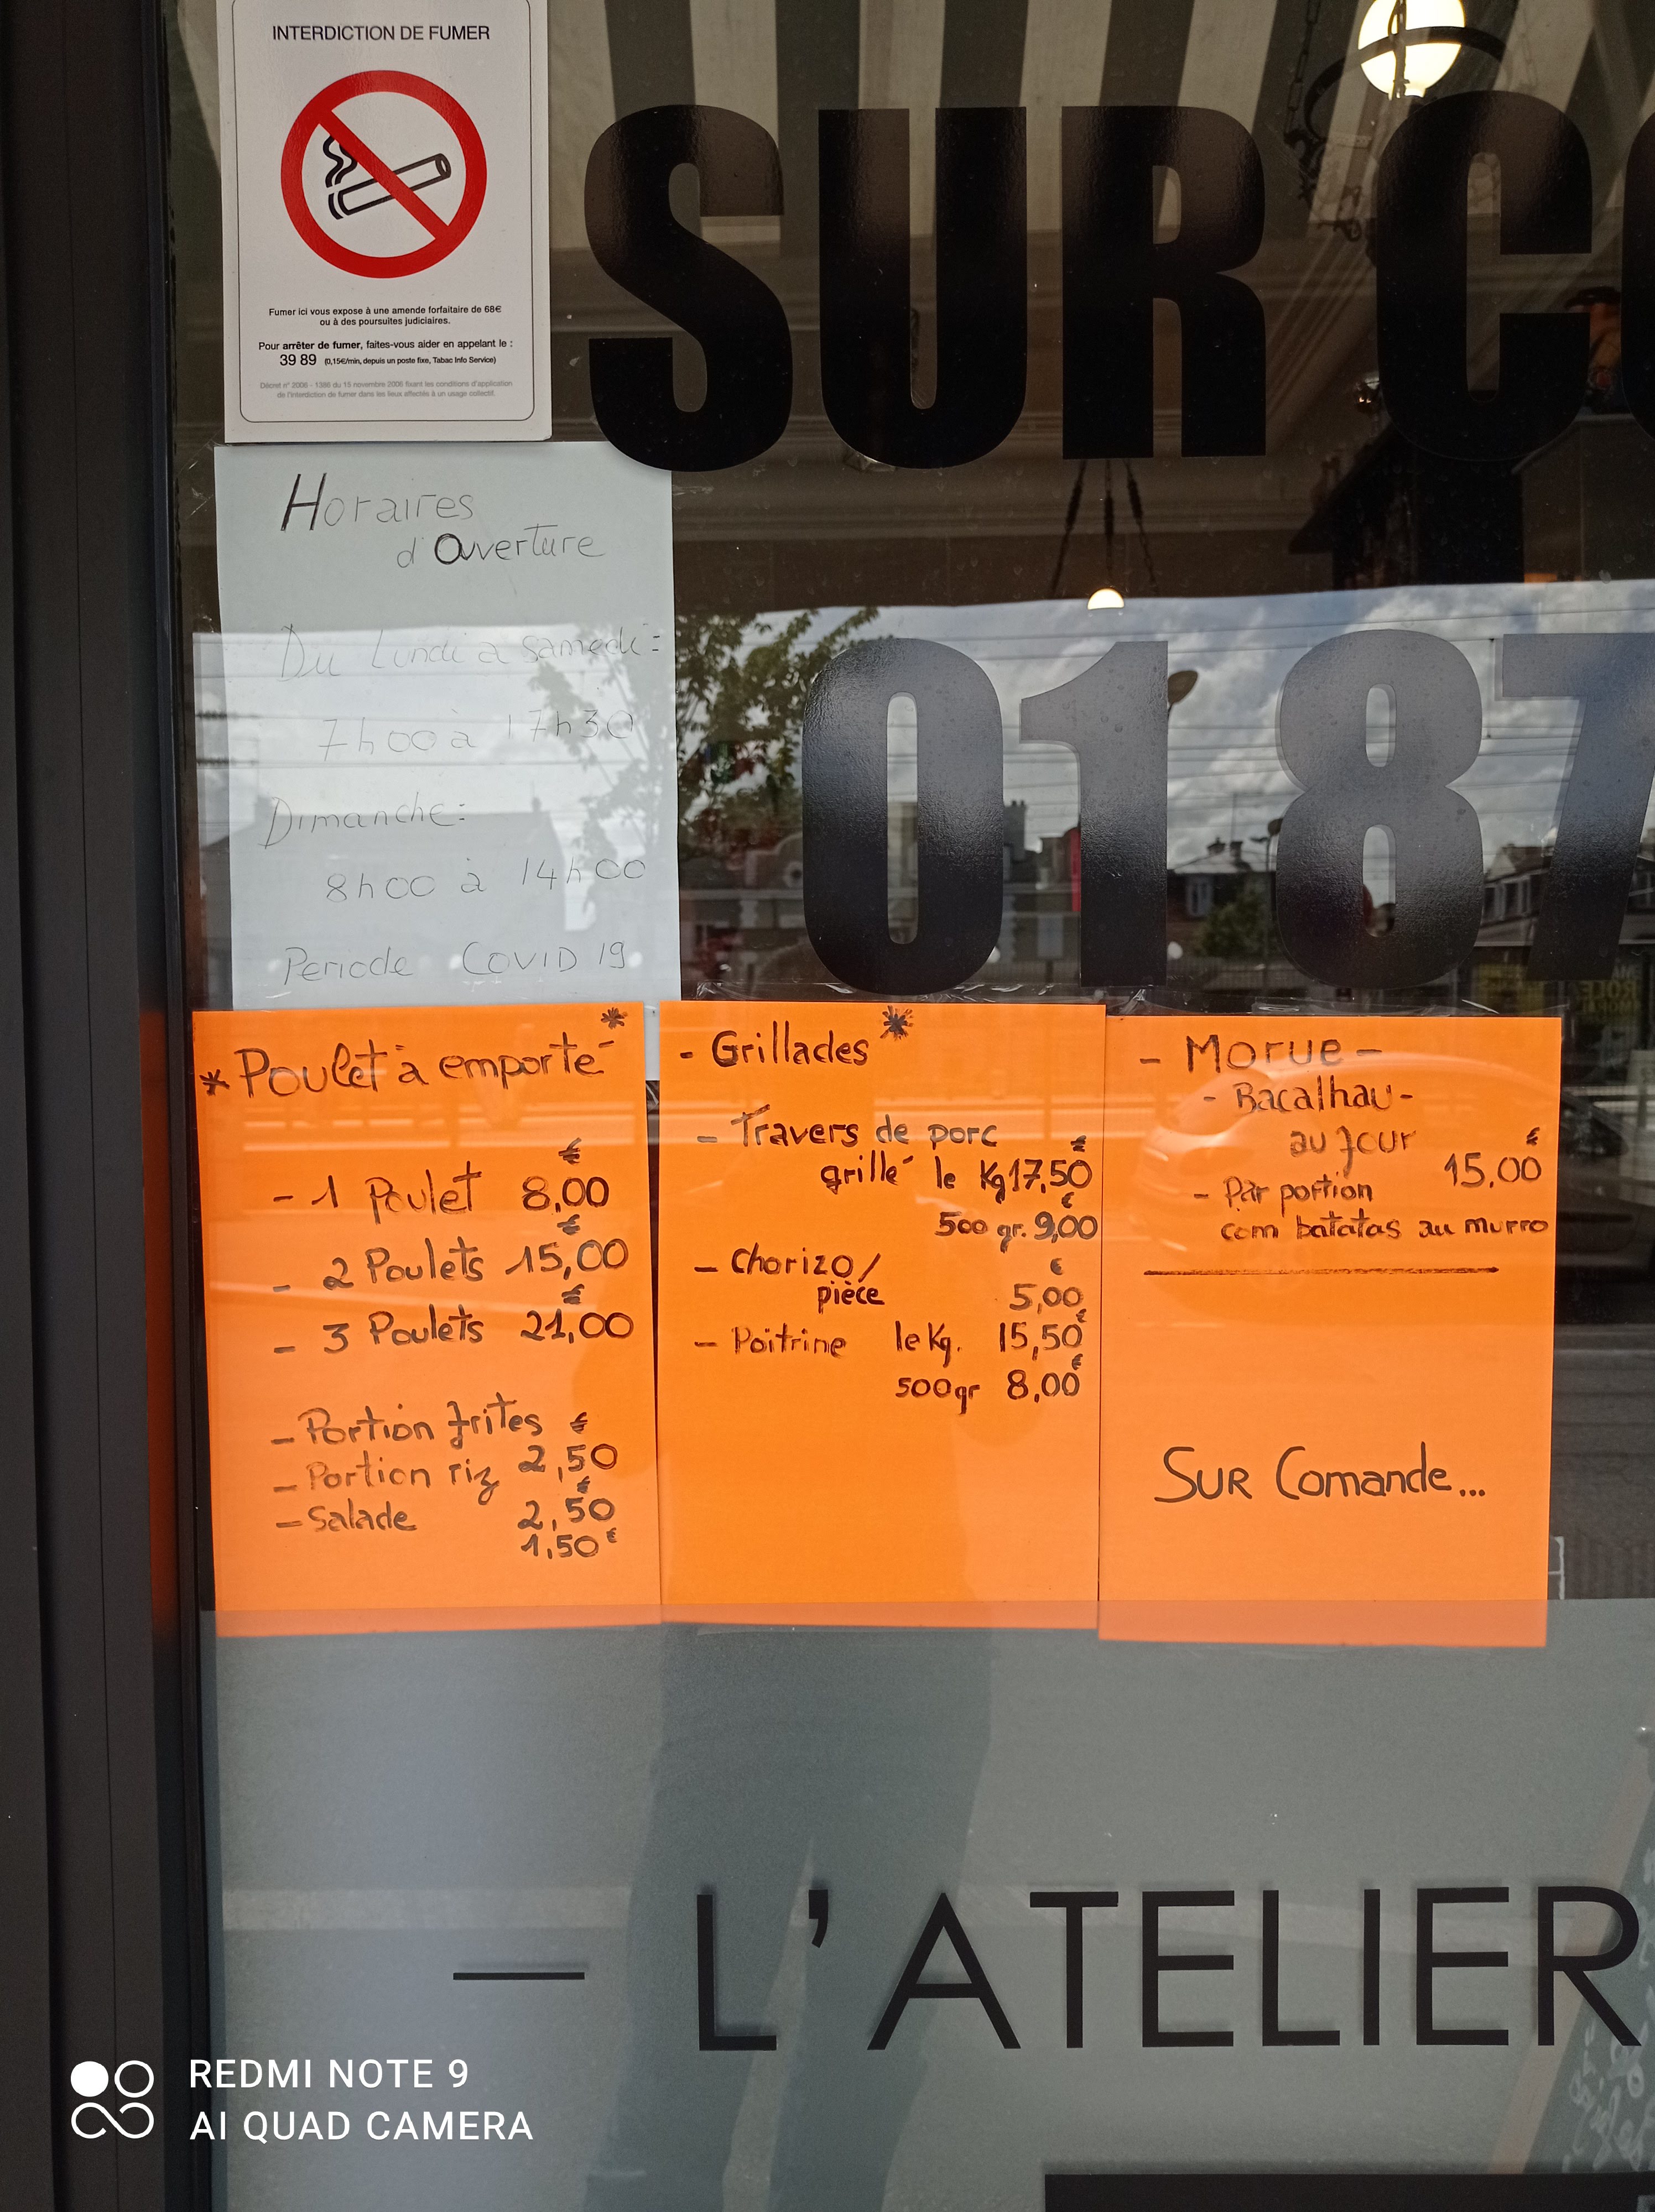 INTERDICTION DE FUMER
Fumer ici vous expose à une amende forfaitaire de 68€
ou à des poursuites judiciaires.
Pour arrêter de fumer, faites-vous aider en appelant le :
39 89 (0,15€/min, depuis un poste fixe, Tabac Info Service)
Décret n° 2006 - 1386 du 15 novembre 2006 fixant les conditions d'application
de l'interdiction de fumer dans les lieux affectés à un usage collectif.
SUR CO
0187
Horaires
d'Ouverture
Du Lundi a samedi =
7h00 à 17h30
Dimanche =
8h00 à 14h00
Periode COVID 19
* Poulet à emporté *
- 1 Poulet 8,00 €
- 2 Poulets 15,00 €
- 3 Poulets 21,00 €
- Portion frites 2,50 €
- Portion riz 2,50 €
- Salade 1,50 €
- Grillades *
- Travers de porc
grillé le Kg 17,50 €
500 gr. 9,00 €
- Chorizo /
pièce 5,00 €
- Poitrine le Kg. 15,50 €
500 gr 8,00 €
- Morue -
- Bacalhau -
au four
- Par portion 15,00 €
com batatas au murro
SUR Comande...
— L'ATELIER
REDMI NOTE 9
AI QUAD CAMERA